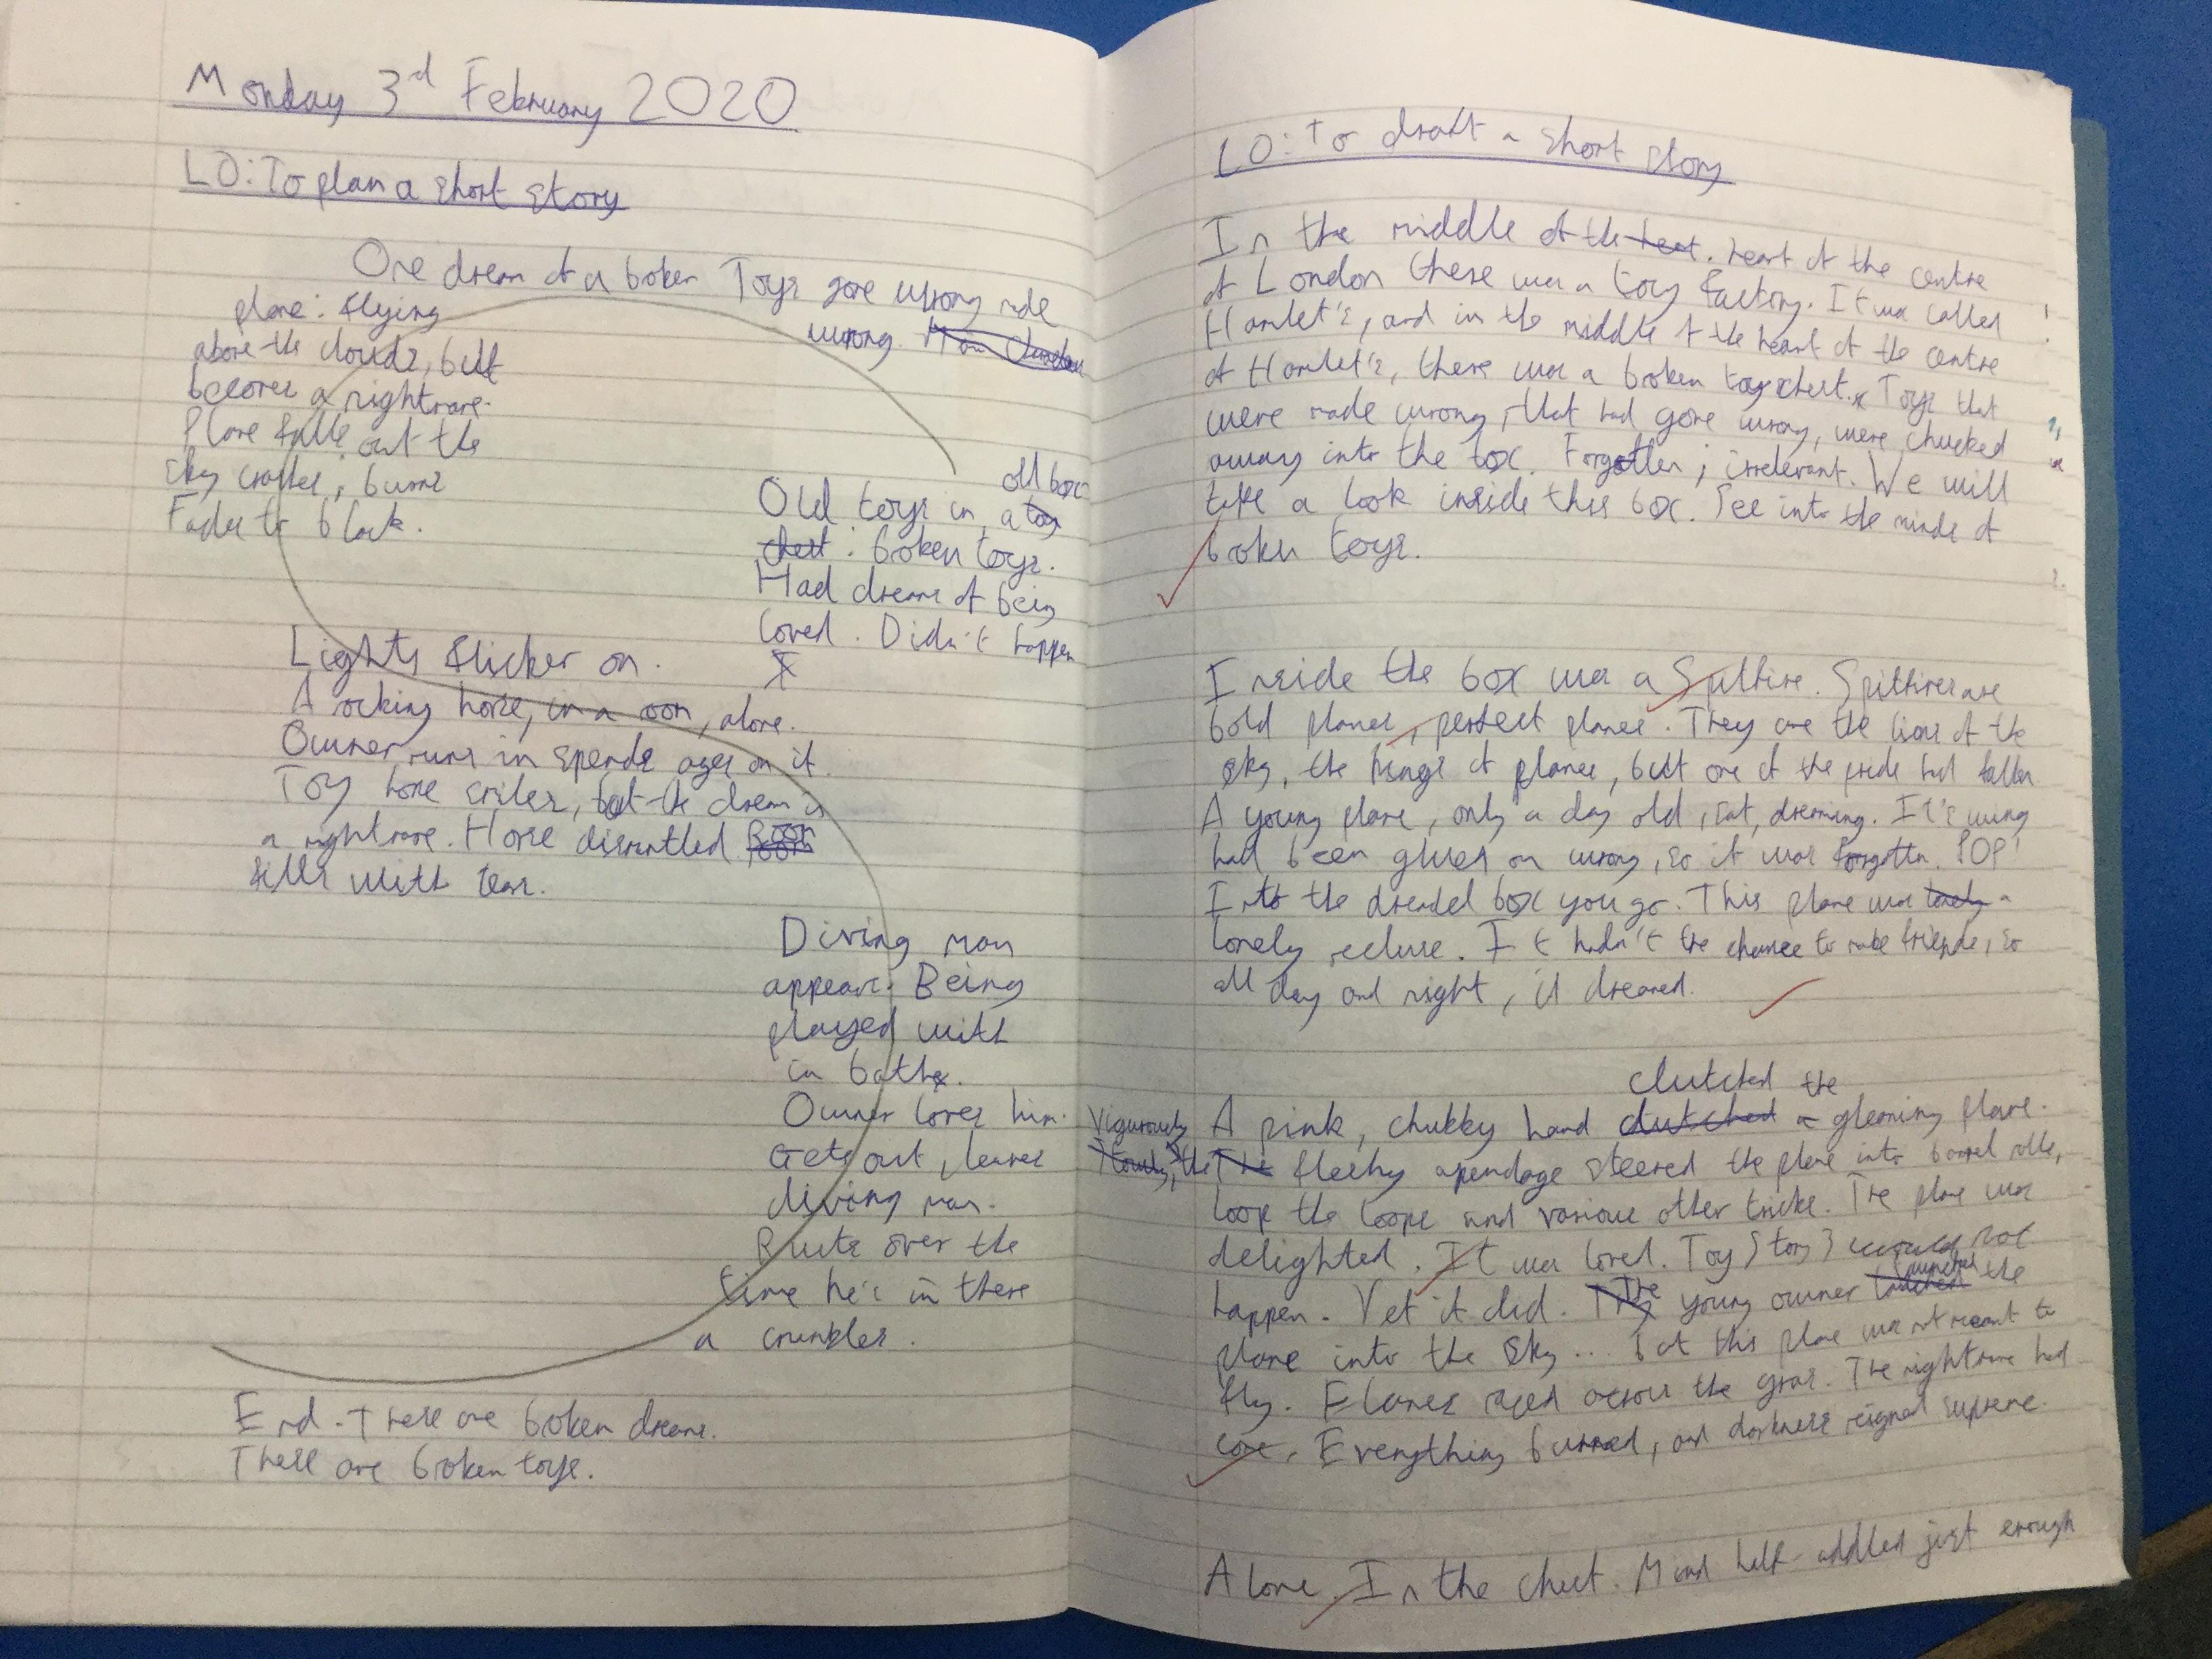 Monday 3rd February 2020
LO: To plan a short story
One dream of a broken
plane: flying
above the clouds, but
becomes a nightmare.
Plane falls out the
sky crashes; burns
Fades to black.
Toys gone wrong made
wrong.
Old toys in a toy old box
chest: broken toys.
Had dreams of being
loved. Didn't happen
Lights flicker on.
A rocking horse, in a room, alone.
Owner runs in spends ages on it.
Toy horse smiles, but the dream is
a nightmare. Horse dismantled. Room
fills with tears.
Diving man
appears. Being
played with
in baths.
Owner loves him.
Gets out, leaves
diving man.
Rusts over the
time he's in there
a crumbles.
End - There are broken dreams.
There are broken toys.
LO: To draft a short story
In the middle of the heat. heart of the centre
of London there was a toy factory. It was called
Hamlet's, and in the middle of the heart of the centre
of Hamlet's, there was a broken toy chest. Toys that
were made wrong, that had gone wrong, were chucked
away into the box. Forgotten; irrelevant. We will
take a look inside this box. See into the minds of
broken toys.
Inside the box was a Spitfire. Spitfires are
bold planes, perfect planes. They are the lions of the
sky, the kings of planes, but one of the pride had fallen
A young plane, only a day old, sat, dreaming. It's wing
had been glued on wrong, so it was forgotten. POP!
Into the dreaded box you go. This plane was lonely a
lonely recluse. It hadn't the chance to make friends, so
all day and night, it dreamed.
clutched the
A pink, chubby hand clutched a gleaming plane.
Vigorously
the The fleshy apendage steered the plane into barrel rolls,
loop the loops and various other tricks. The plane was
delighted. It was loved. Toy Story 3 would not
happen. Yet it did. The young owner launched the
plane into the sky... but this plane was not meant to
fly. Flames raced across the grass. The nightmare had
come. Everything burned, and darkness reigned supreme.
Alone. In the chest. Mind half-addled just enough